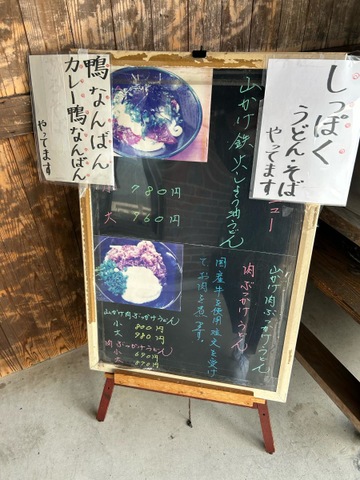 しっぽく
うどん・そば
やってます
鴨なんばん
カレー鴨なんばん
やってます
ュー
山かけ鉄火しょう油うどん
780円
大 960円
山かけ肉ぶっかけうどん
肉ぶっかけうどん
国産牛を使用注文を受け
てお肉を煮ます。
山かけ肉ぶっかけうどん
小 800円
大 980円
肉ぶっかけうどん
小 690円
大 870円